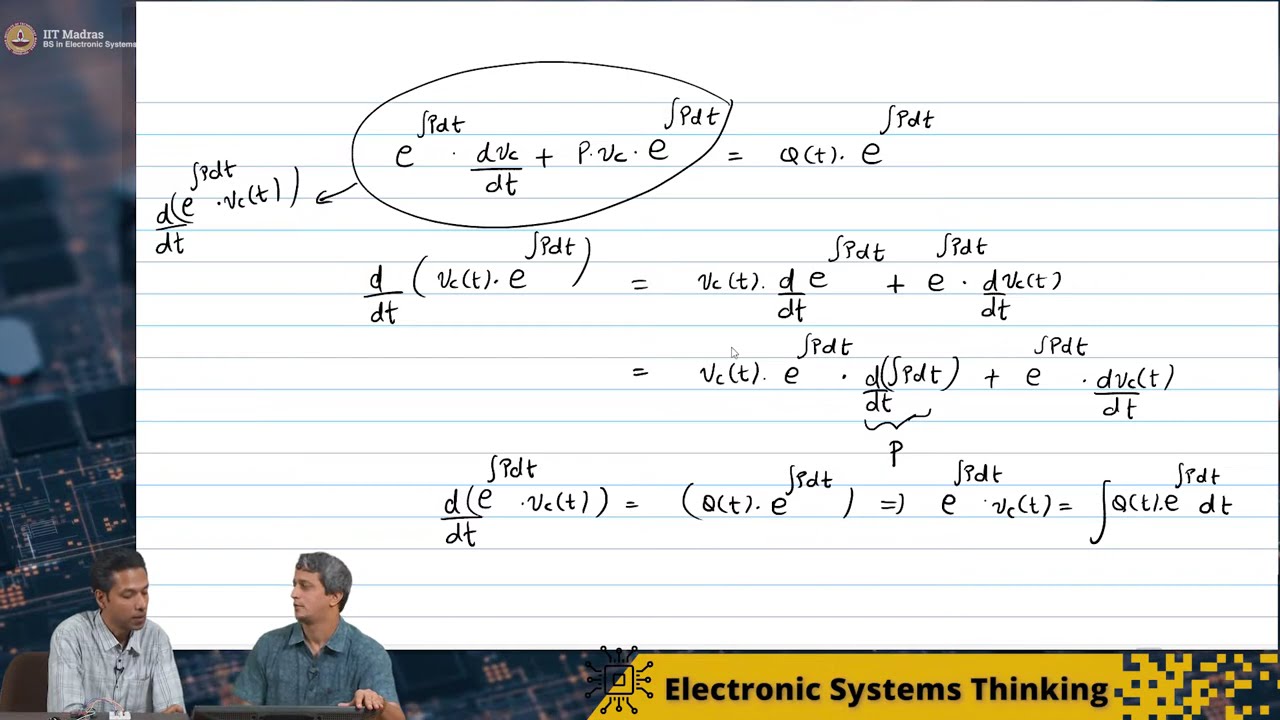 IIT Madras
BS in Electronic Systems
e^{∫Pdt} · dv_c/dt + P·v_c · e^{∫Pdt} = Q(t) · e^{∫Pdt}
d/dt (e^{∫Pdt} · v_c(t))
d/dt (v_c(t) · e^{∫Pdt}) = v_c(t) · d/dt e^{∫Pdt} + e^{∫Pdt} · d/dt v_c(t)
= v_c(t) · e^{∫Pdt} · d/dt (∫Pdt) + e^{∫Pdt} · dv_c(t)/dt
P
d/dt (e^{∫Pdt} · v_c(t)) = (Q(t) · e^{∫Pdt}) ⇒ e^{∫Pdt} · v_c(t) = ∫Q(t).e^{∫Pdt} dt
Electronic Systems Thinking